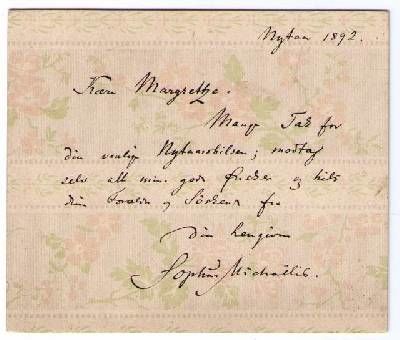 Nytaar 1892.
Kære Margrethe.
Mange Tak for
din venlige Nytaarshilsen; modtag
selv alt min gode Ønsker og hils
dine Forældre og Søskende fra
din hengivne
Sophus Michaëlis.